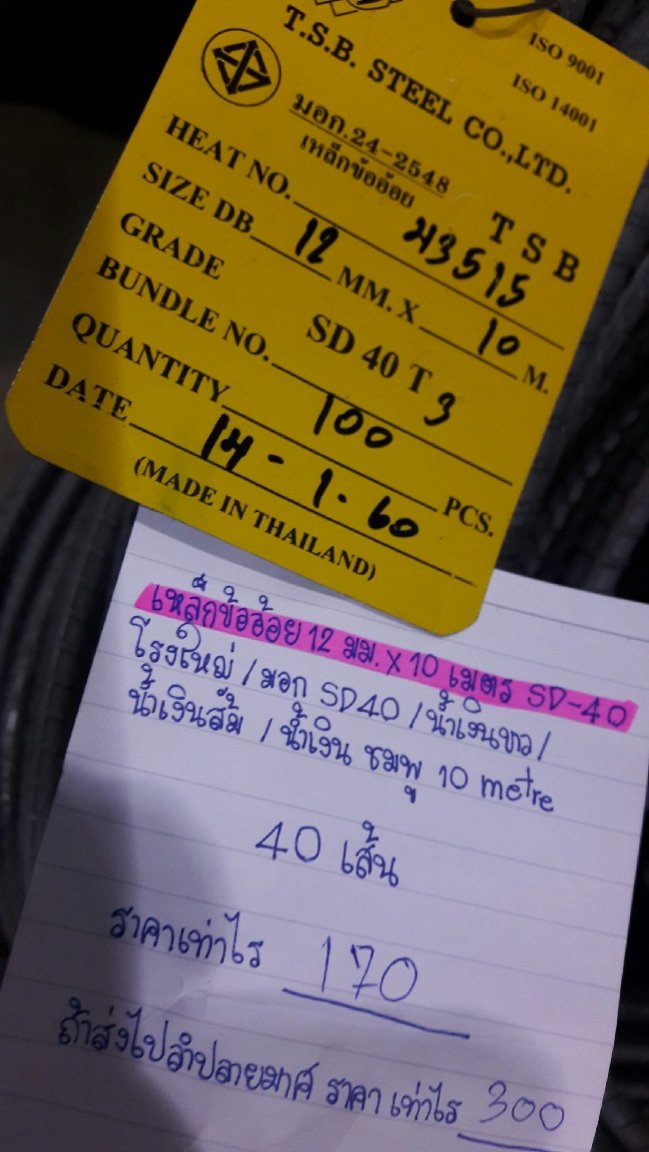 ISO 9001
ISO 14001
T.S.B. STEEL CO.,LTD.
มอก.24-2548
เหล็กข้ออ้อย
T S B
HEAT NO. 43515
SIZE DB 12 MM. X 10 M.
GRADE SD 40 T
BUNDLE NO. 3
QUANTITY 100 PCS.
DATE 14-1.60
(MADE IN THAILAND)
เหล็กข้ออ้อย 12 มม. X 10 เมตร SD-40
โรงใหญ่ / มอก SD40 / น้ำเงินขาว /
น้ำเงินส้ม / น้ำเงิน ชมพู 10 metre
40 เส้น
ราคาเท่าไร 170
ถ้าส่งไปลำปลายมาศ ราคา เท่าไร 300